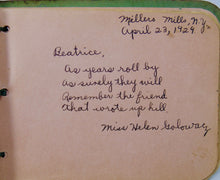 Millers Mills, N.Y.
April 23, 1929.
Beatrice,
As years roll by
as surely they will
Remember the friend
that wrote up hill
Miss Helen Goloway